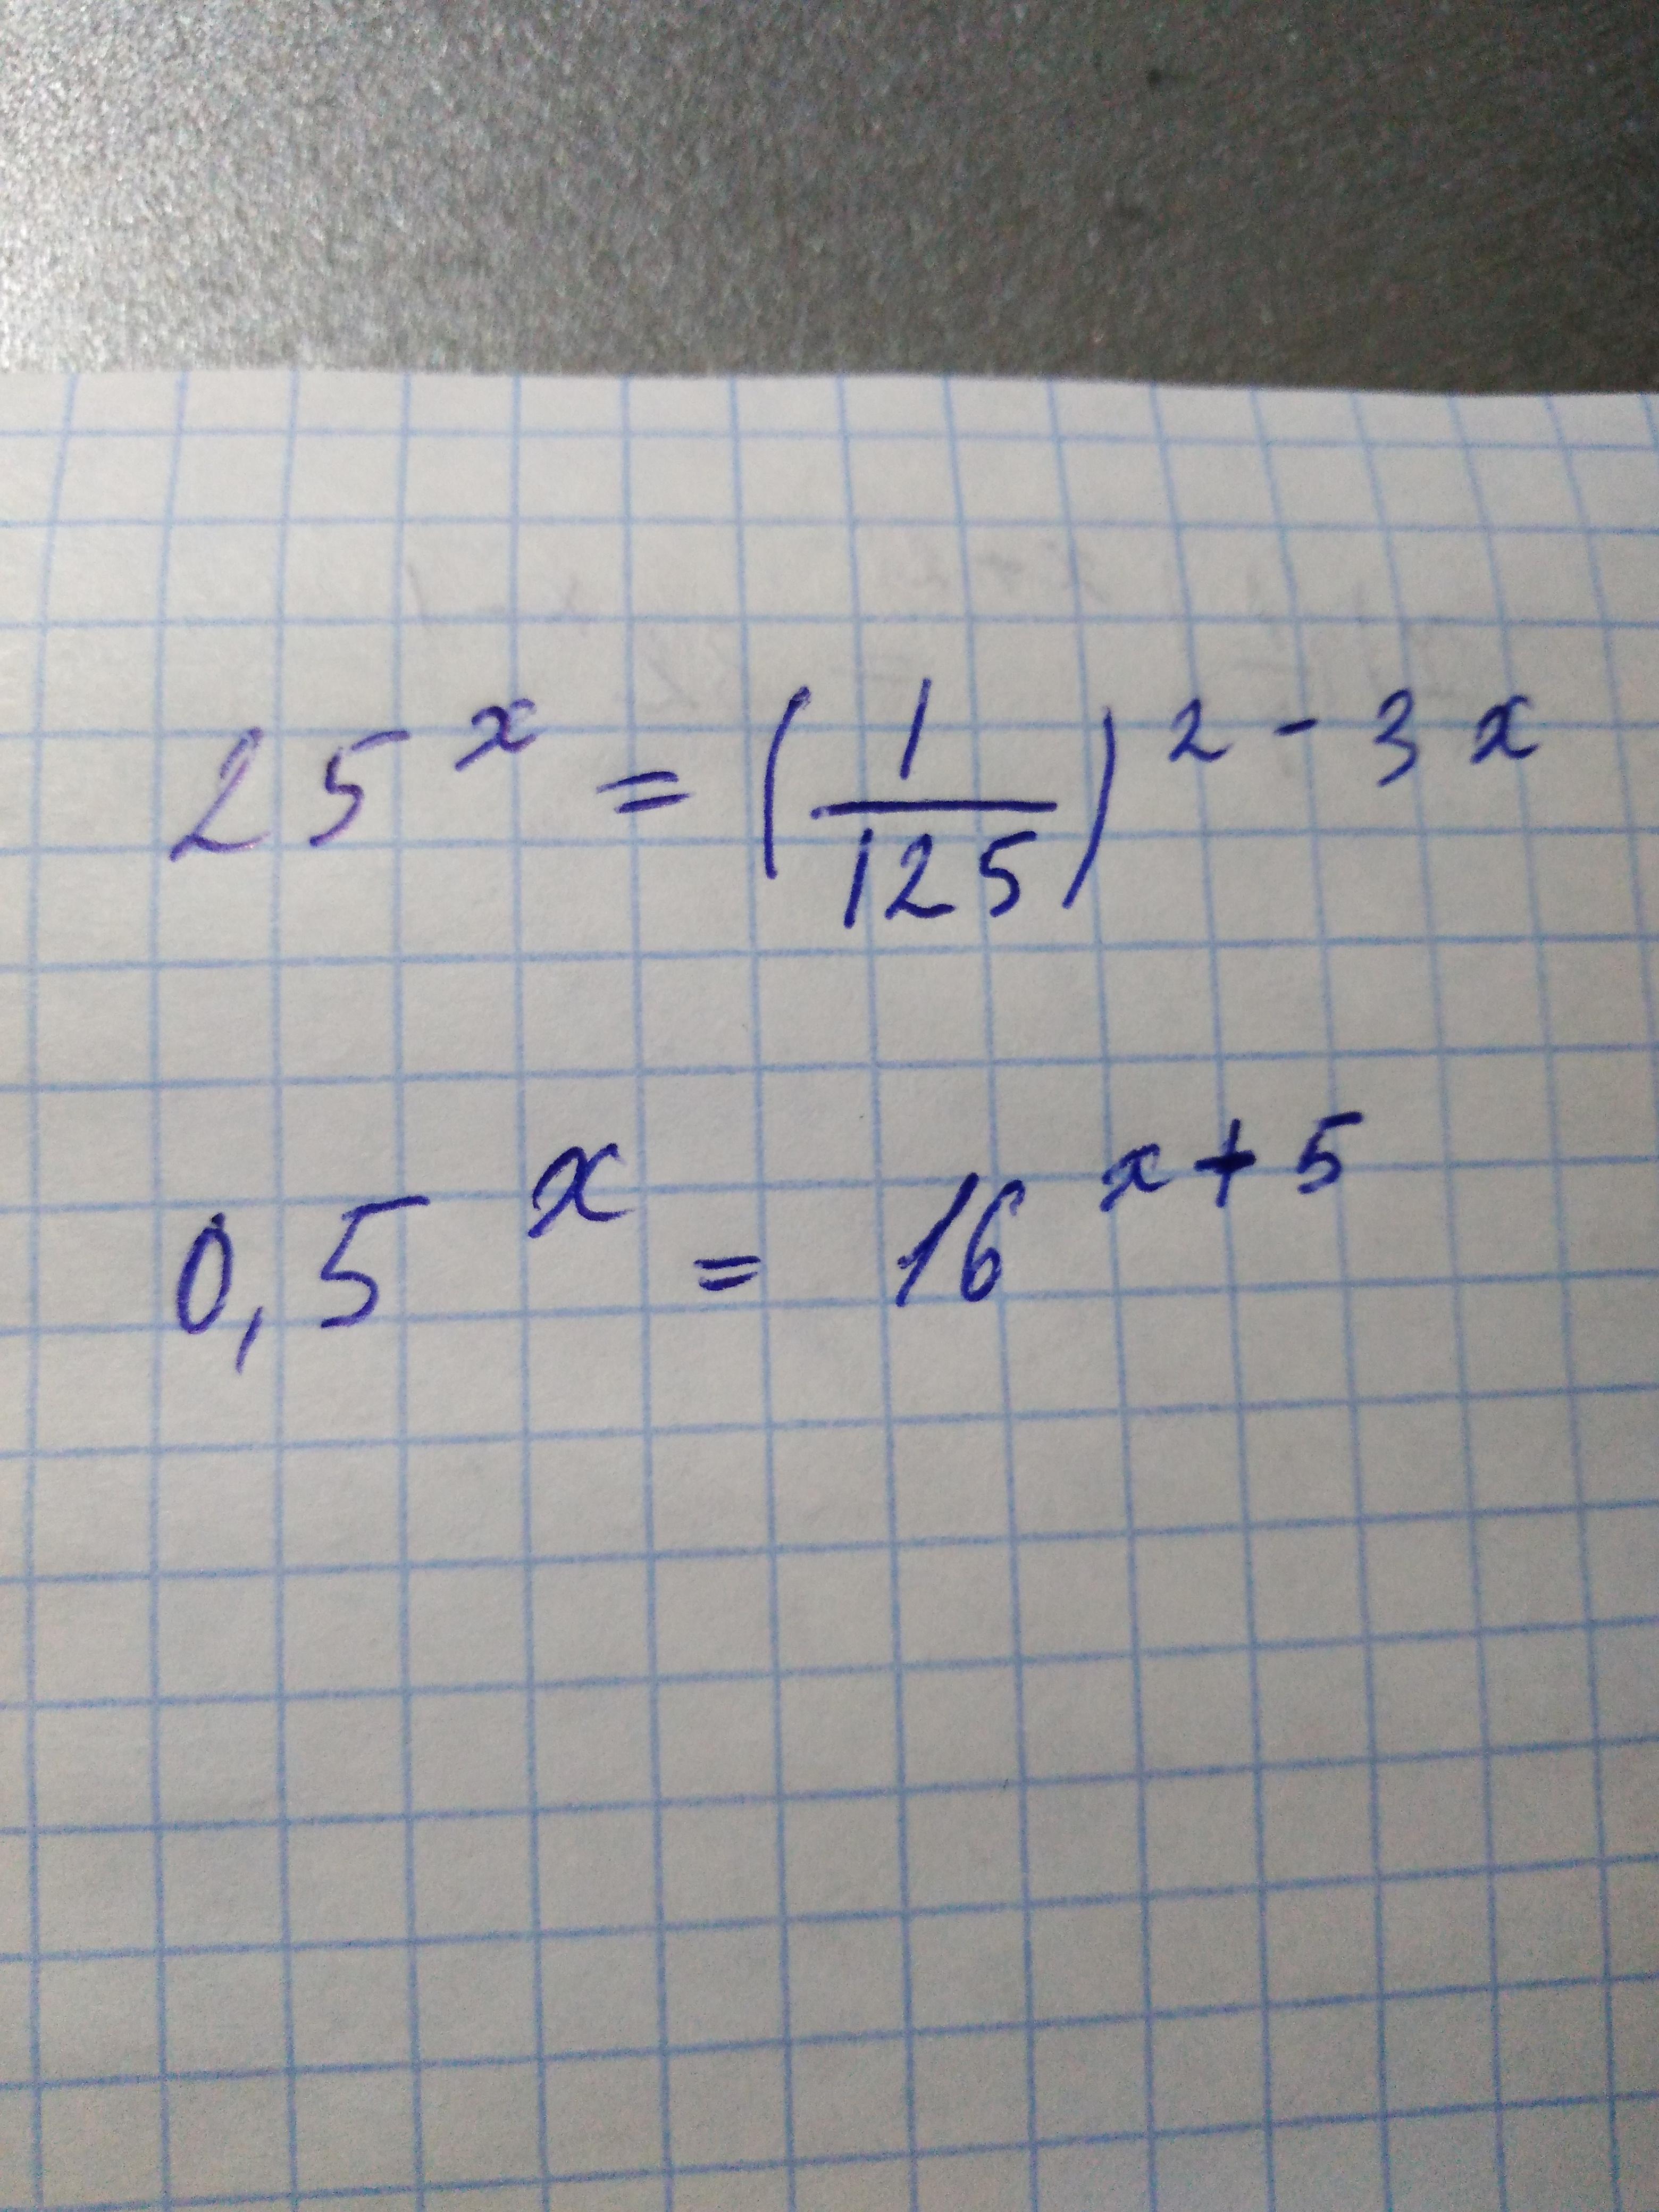 25^x = (1/125)^2 - 3x
0,5^x = 16^x+5